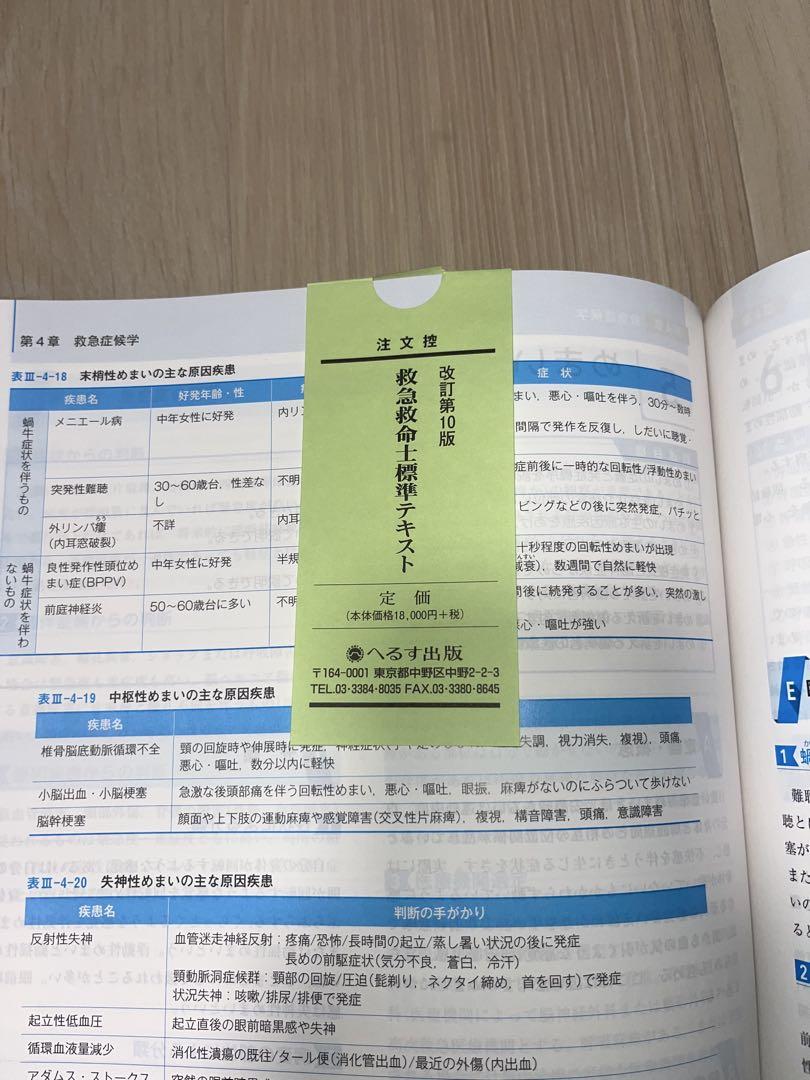 第4章 救急症候学
注文控
改訂第10版
救急救命士標準テキスト
定価
(本体価格18,000円+税)
へるす出版
〒164-0001 東京都中野区中野2-2-3
TEL.03-3384-8035 FAX.03-3380-8645
表Ⅲ-4-18 末梢性めまいの主な原因疾患
疾患名 好発年齢・性 症状
蝸牛症状を伴うもの
メニエール病 中年女性に好発 内リン まい，悪心・嘔吐を伴う，30分～数時
間隔で発作を反復し，しだいに聴覚・
突発性難聴 30～60歳台，性差なし 不明 症前後に一時的な回転性/浮動性めまい
外リンパ瘻(内耳窓破裂) 不詳 内耳 ピングなどの後に突然発症，パチッと
蝸牛症状を伴わないもの
良性発作性頭位めまい症(BPPV) 中年女性に好発 半規 十秒程度の回転性めまいが出現
減衰)，数週間で自然に軽快
前庭神経炎 50～60歳台に多い 不明 間後に続発することが多い，突然の激し
悪心・嘔吐が強い
表Ⅲ-4-19 中枢性めまいの主な原因疾患
疾患名
椎骨脳底動脈循環不全 頸の回旋時や伸展時に発症，神経症状 失調，視力消失，複視)，頭痛，
悪心・嘔吐，数分以内に軽快
小脳出血・小脳梗塞 急激な後頭部痛を伴う回転性めまい，悪心・嘔吐，眼振，麻痺がないのにふらついて歩けない
脳幹梗塞 顔面や上下肢の運動麻痺や感覚障害(交叉性片麻痺)，複視，構音障害，頭痛，意識障害
表Ⅲ-4-20 失神性めまいの主な原因疾患
疾患名 判断の手がかり
反射性失神 血管迷走神経反射：疼痛/恐怖/長時間の起立/蒸し暑い状況の後に発症
長めの前駆症状(気分不良，蒼白，冷汗)
頸動脈洞症候群：頸部の回旋/圧迫(髭剃り，ネクタイ締め，首を回す)で発症
状況失神：咳嗽/排尿/排便で発症
起立性低血圧 起立直後の眼前暗黒感や失神
循環血液量減少 消化性潰瘍の既往/タール便(消化管出血)/最近の外傷(内出血)
アダムス・ストークス
E
1
難
聴と
塞が
また
いの
ると
2